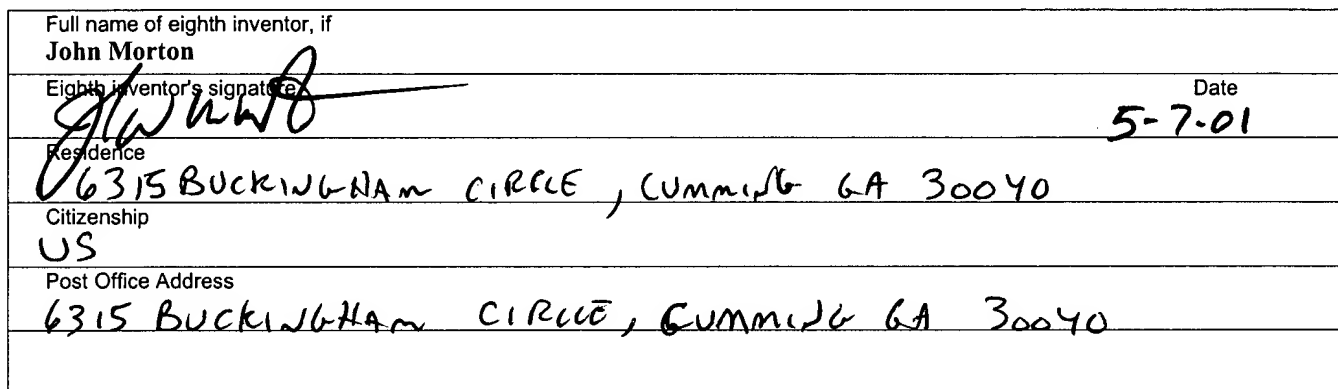 Full name of eighth inventor, if
John Morton
Eighth inventor's signature
Date
5-7-01
Residence
6315 BUCKINGHAM CIRCLE, CUMMING GA 30040
Citizenship
US
Post Office Address
6315 BUCKINGHAM CIRCLE, CUMMING GA 30040